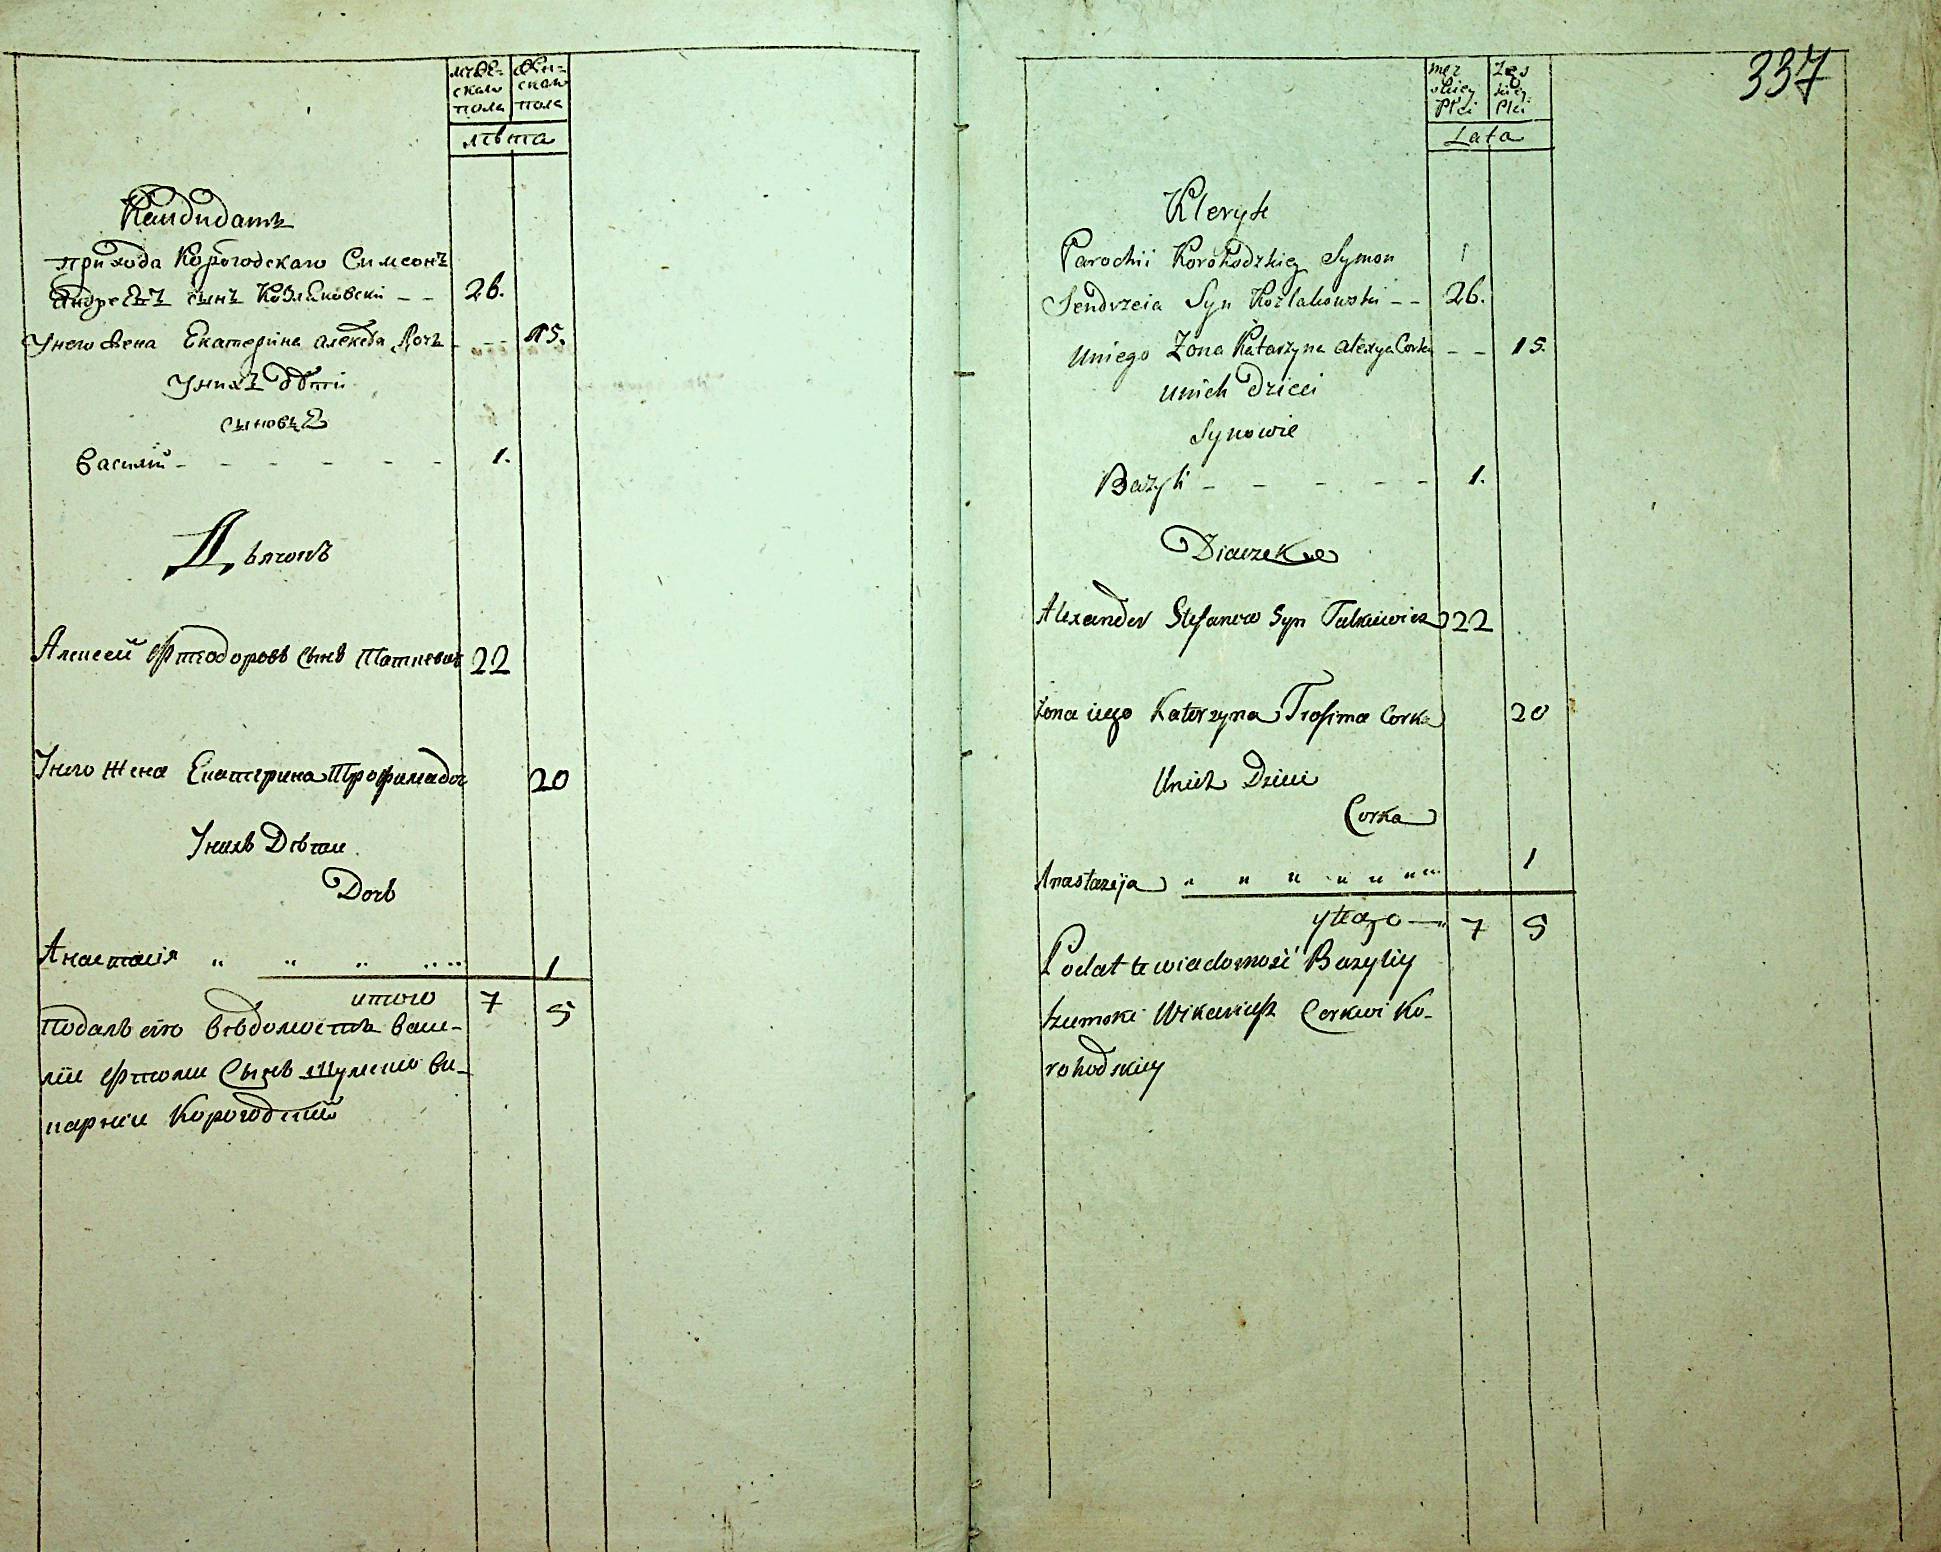 мужескаго пола женскаго пола
лѣта
Кандидатъ
прихода Корогодскаго Симеонъ
Андреевъ сынъ Козляковскій – – 26.
Унего жена Екатерина алексѣа Дочь – – 15.
Унихъ дѣти
сыновья
Василій – – – – – – 1.
Дьячокъ
Алексей Фтеодоровъ Сынъ 22
Унего жена Екатерина Трофимадоч 20
Унихъ Дѣти
Дочь
Анастасія „ „ „ „ „ 1
итого 7 5
Подалъ сію вѣдомость Васи-
лій Сынъ Шумскій ви-
карній Корогодскій
337
męzskiey Płci Zęskiey Płci
Lata
Kleryk
Parochii Korohodzkiey Symon
Jendrzeia Syn Kozlakowski – – 26.
Uniego Zona Katarzyna alexya Corka – – 15.
unich Dzieci
Synowie
Bazyli – – – – – 1.
Diaczek
Alexander Stefanow Syn 22
Żona iego Katerzyna Trofima Corka 20
Unich Dzieci
Corka
Anastazija „ „ „ „ „ „ „ 1
ytego — 7 5
Podał te wiadomość Bazyliy
Szumski Wikariusz Cerkwi Ko-
rohodskiey